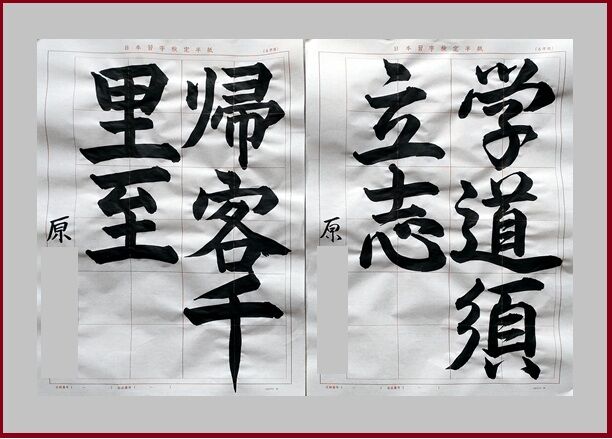 日本習字検定半紙
学道須
立志
原
日本習字検定半紙
帰客千
里至
原